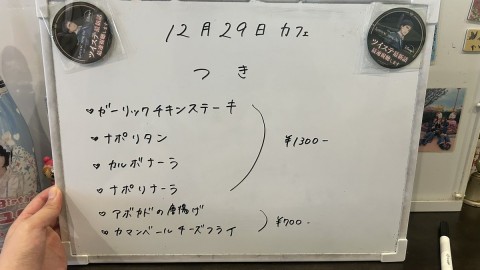 12月29日 カフェ
つき
♡ガーリックチキンステーキ
♡ナポリタン
¥1300-
♡カルボナーラ
♡ナポリナーラ
♡アボカドの唐揚げ
¥700-
♡カマンベールチーズフライ